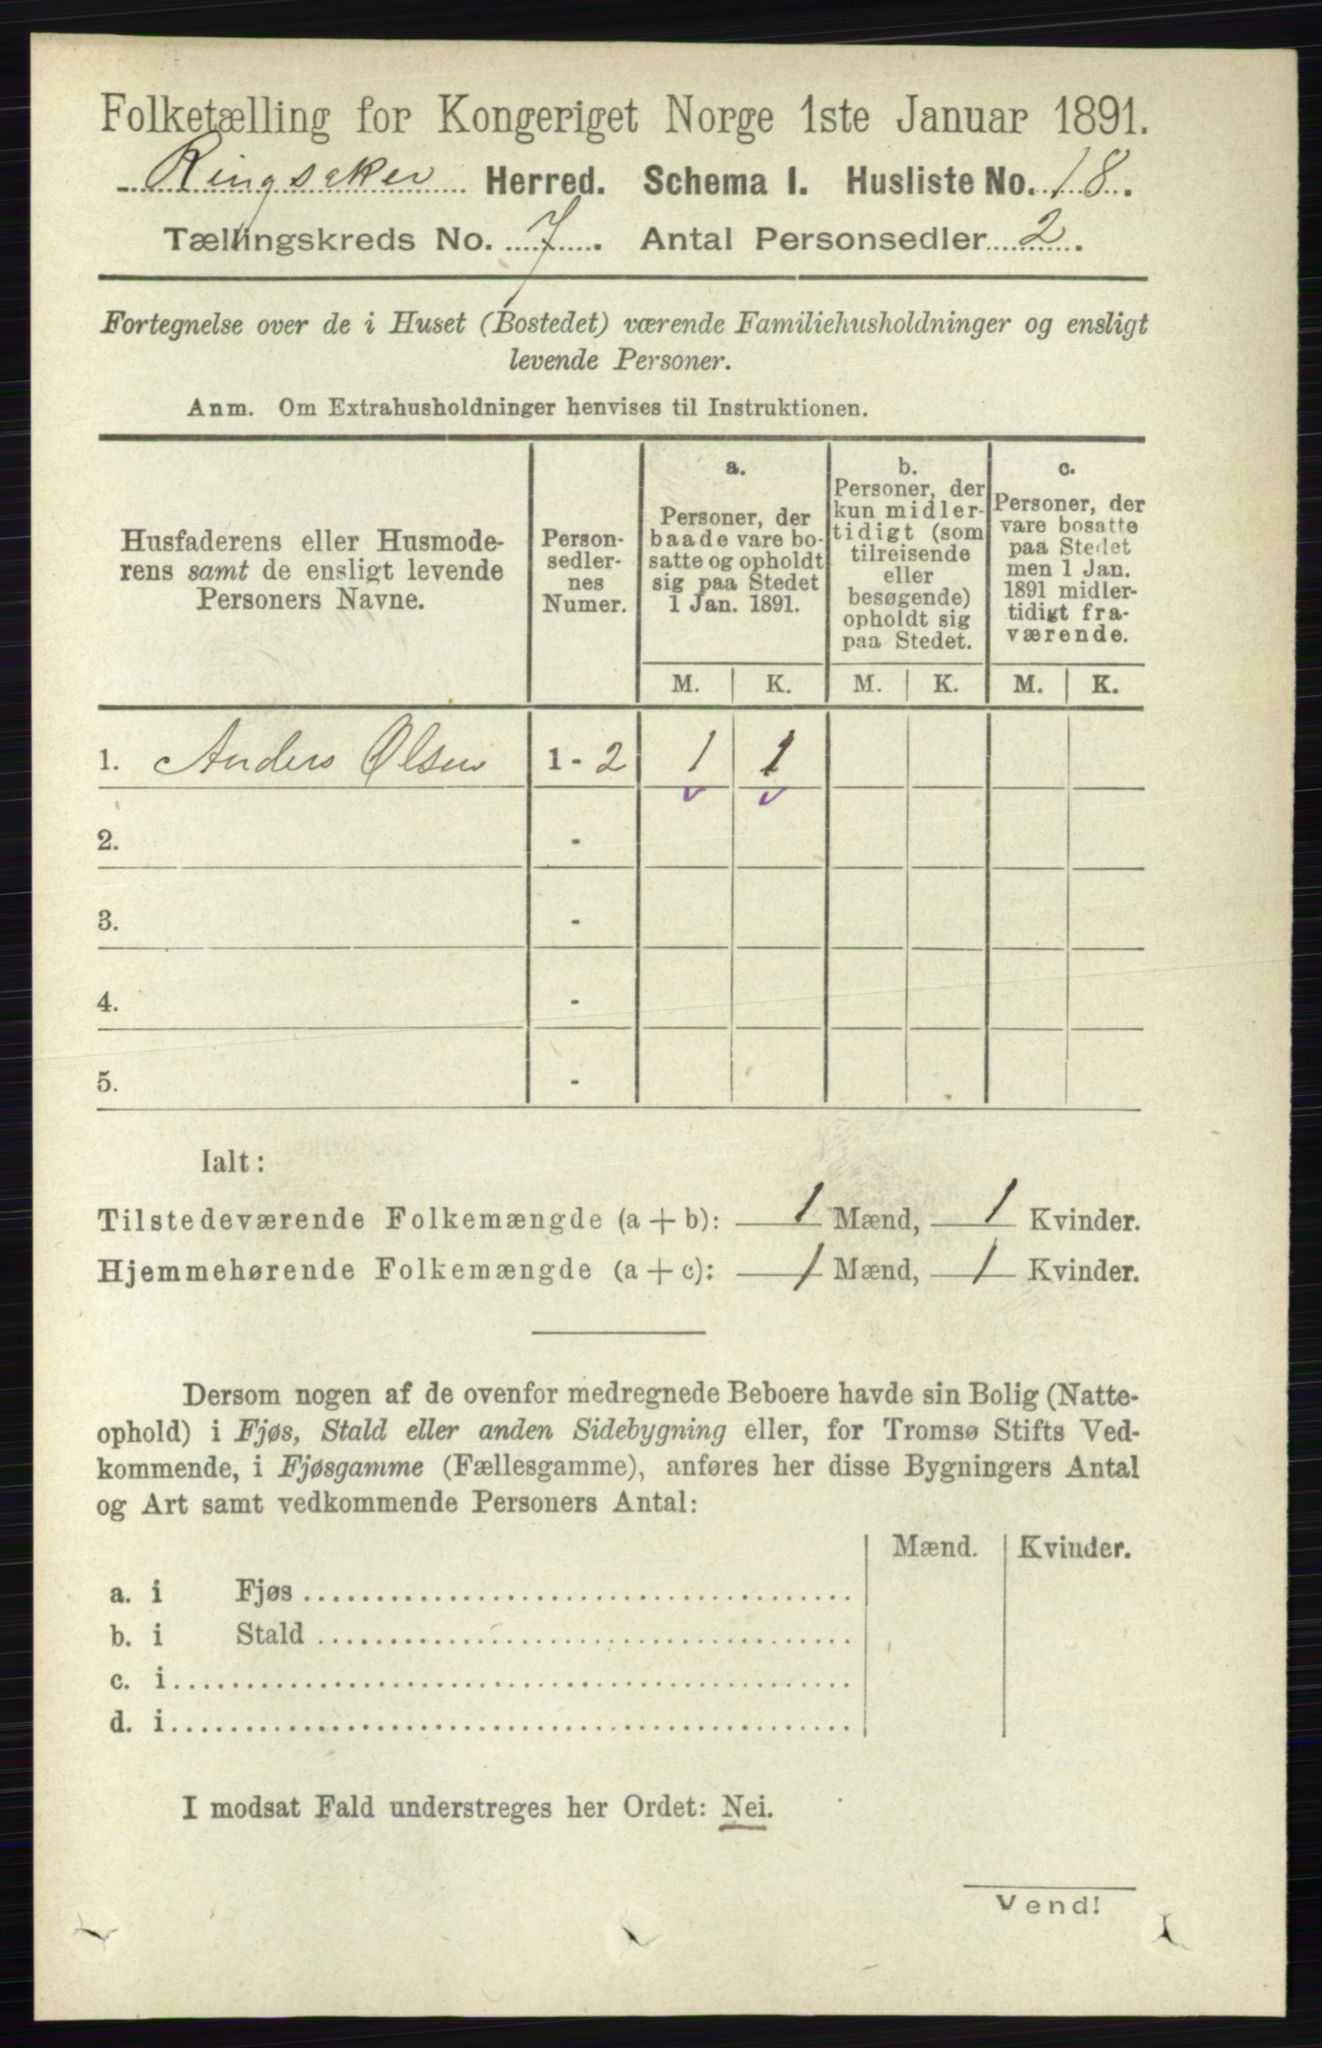 Folketælling for Kongeriget Norge 1ste Januar 1891.
Ringsaker Herred. Schema I. Husliste No. 18.
Tællingskreds No. 7. Antal Personsedler 2.
Fortegnelse over de i Huset (Bostedet) værende Familiehusholdninger og ensligt
levende Personer.
Anm. Om Extrahusholdninger henvises til Instruktionen.
Husfaderens eller Husmode-
rens samt de ensligt levende
Personers Navne.
Person-
sedler-
nes
Numer.
a.
Personer, der
baade vare bo-
satte og opholdt
sig paa Stedet
1 Jan. 1891.
b.
Personer, der
kun midler-
tidigt (som
tilreisende
eller
besøgende)
opholdt sig
paa Stedet.
c.
Personer, der
vare bosatte
paa Stedet
men 1 Jan.
1891 midler-
tidigt fra-
værende.
M. K. M. K. M. K.
1. Anders Olsen 1 - 2 1 1
2. -
3. -
4. -
5. -
Ialt:
Tilstedeværende Folkemængde (a + b): 1 Mænd, 1 Kvinder.
Hjemmehørende Folkemængde (a + c): 1 Mænd, 1 Kvinder.
Dersom nogen af de ovenfor medregnede Beboere havde sin Bolig (Natte-
ophold) i Fjøs, Stald eller anden Sidebygning eller, for Tromsø Stifts Ved-
kommende, i Fjøsgamme (Fællesgamme), anføres her disse Bygningers Antal
og Art samt vedkommende Personers Antal:
Mænd. Kvinder.
a. i Fjøs
b. i Stald
c. i
d. i
I modsat Fald understreges her Ordet: Nei.
Vend!